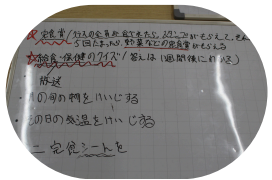 完食賞/行スの全員が完食できたら、スタンプがもらえて、それが
5回たまったら、野菜などの完食賞がもらえる
☆給食・保健のクイズ/答えは1週間後にわかる
・放送
・月の旬の物をけいじする
・その日の気温をけいじする
完食シートを